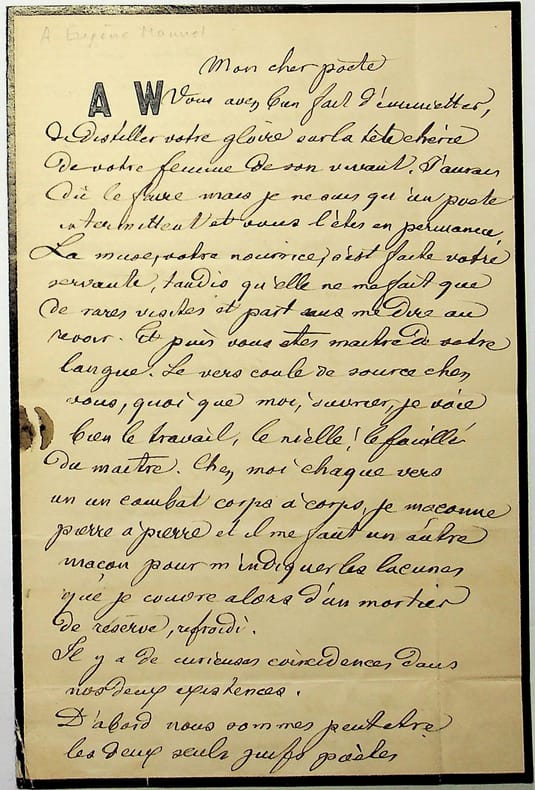 A Eugène Manuel
Mon cher poète
A W Vous avez bien fait d'émietter,
de distiller votre gloire sur la tête chérie
de votre femme de son vivant. J'aurais
dû le faire mais je ne suis qu'un poete
intermittent et vous l'êtes en permanence,
La muse, votre nourrice, s'est faite votre
servante, tandis qu'elle ne me fait que
de rares visites et part sans me dire au
revoir. Et puis vous etes maitre de votre
langue. Le vers coule de source chez
vous, quoi que moi, ouvrier, je voie
bien le travail, le niellé, le fouillé
du maitre. Chez moi chaque vers
un combat corps à corps, je maconne
pierre à pierre et il me faut un autre
macon pour m'indiquer les lacunes
que je couvre alors d'un mortier
de réserve, refroidi.
Il y a de curieuses coincidences dans
nos deux existences.
D'abord nous sommes peut etre
les deux seuls juifs poètes